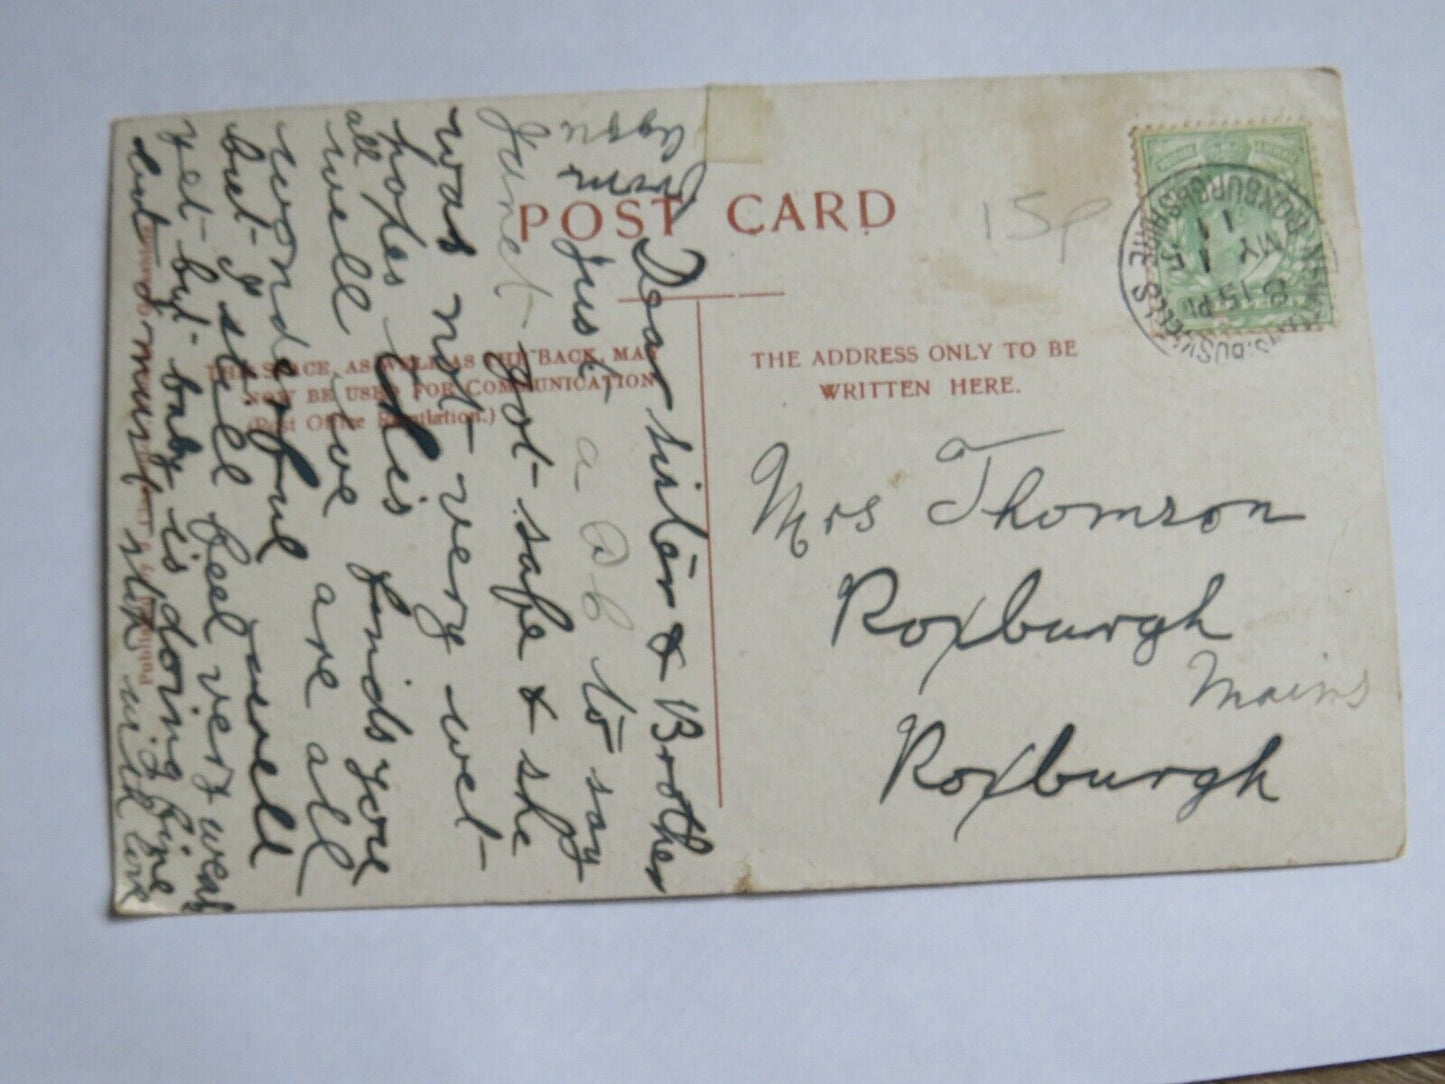 POST CARD
15p
THIS SPACE, AS WELL AS THE BACK, MAY
NOW BE USED FOR COMMUNICATION
(Post Office Regulation.)
THE ADDRESS ONLY TO BE
WRITTEN HERE.
ST. BOSWELLS
ROXBURGHSHIRE
8 15 PM
MY 1
11
Mrs Thomson
Roxburgh
Mains
Roxburgh
Dear sister & Brother
Just a P C to say
Janet got safe & she
was not very wet
hopes this finds you
all well we are all
wonderful well
but I still feel very weak
yet but baby is doing fine
but I must with
from